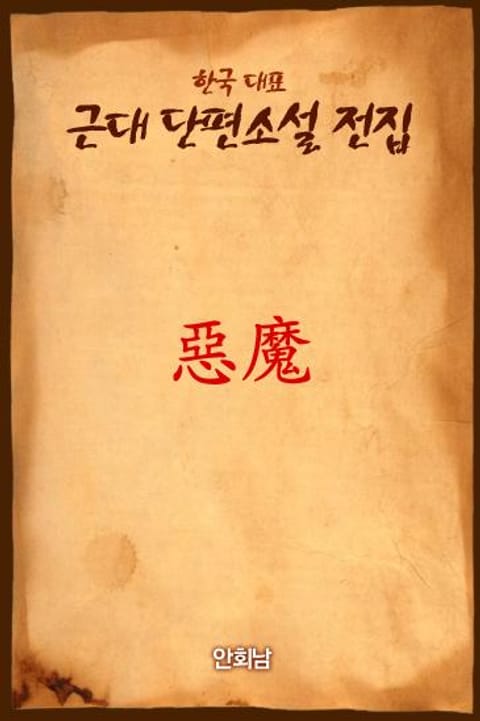 한국 대표
근대 단편소설 전집
惡魔
안회남